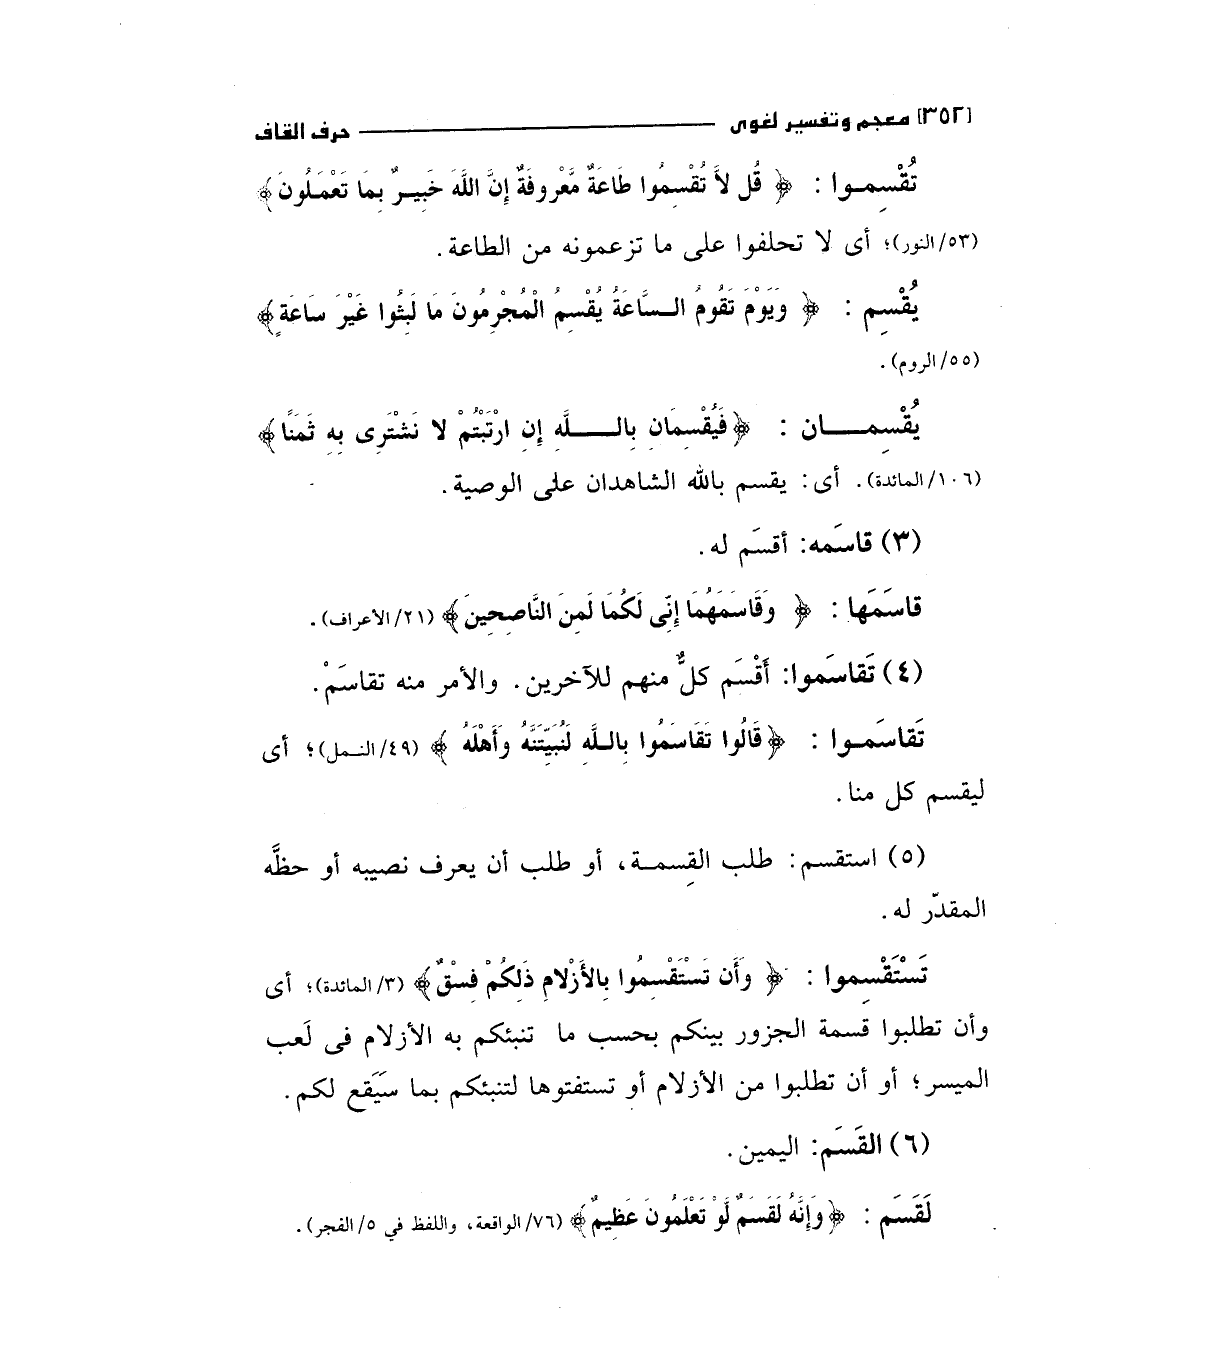 [٣٥٢] معجم وتفسير لغوى ـــــــ حرف القاف
تُقْسِمـوا : ﴿ قُل لاَّ تُقْسِمُوا طَاعَةٌ مَّعْرُوفَةٌ إِنَّ اللَّهَ خَبِيـرٌ بِمَا تَعْمَلُونَ ﴾
(٥٣/النور)؛ أى لا تحلفوا على ما تزعمونه من الطاعة.
يُقْسِم : ﴿ وَيَوْمَ تَقُومُ السَّاعَةُ يُقْسِمُ الْمُجْرِمُونَ مَا لَبِثُوا غَيْرَ سَاعَةٍ ﴾
(٥٥/الروم).
يُقْسِمـــان : ﴿فَيُقْسِمَانِ بِاللَّهِ إِنِ ارْتَبْتُمْ لا نَشْتَرِى بِهِ ثَمَنًا ﴾
(١٠٦/المائدة). أى: يقسم بالله الشاهدان على الوصية.
(٣) قاسَمه: أقسَم له.
قاسَمَها : ﴿ وَقَاسَمَهُمَا إِنِّى لَكُمَا لَمِنَ النَّاصِحِينَ ﴾ (٢١/الأعراف).
(٤) تَقاسَموا: أَقْسَم كلٌّ منهم للآخرين. والأمر منه تقاسَمْ.
تَقاسَمـوا : ﴿ قَالُوا تَقَاسَمُوا بِاللَّهِ لَنُبَيِّتَنَّهُ وَأَهْلَهُ ﴾ (٤٩/النمل)؛ أى
ليقسم كل منا.
(٥) استقسم: طلب القِسمـة، أو طلب أن يعرف نصيبه أو حظَّه
المقدّر له.
تَسْتَقْسِموا : ﴿ وَأَن تَسْتَقْسِمُوا بِالأَزْلامِ ذَلِكُمْ فِسْقٌ ﴾ (٣/المائدة)؛ أى
وأن تطلبوا قسمة الجزور بينكم بحسب ما تنبئكم به الأزلام فى لَعب
الميسر؛ أو أن تطلبوا من الأزلام أو تستفتوها لتنبئكم بما سَيَقع لكم.
(٦) القَسَم: اليمين.
لَقَسَم : ﴿ وَإِنَّهُ لَقَسَمٌ لَّوْ تَعْلَمُونَ عَظِيمٌ ﴾ (٧٦/الواقعة، واللفظ في ٥/الفجر).